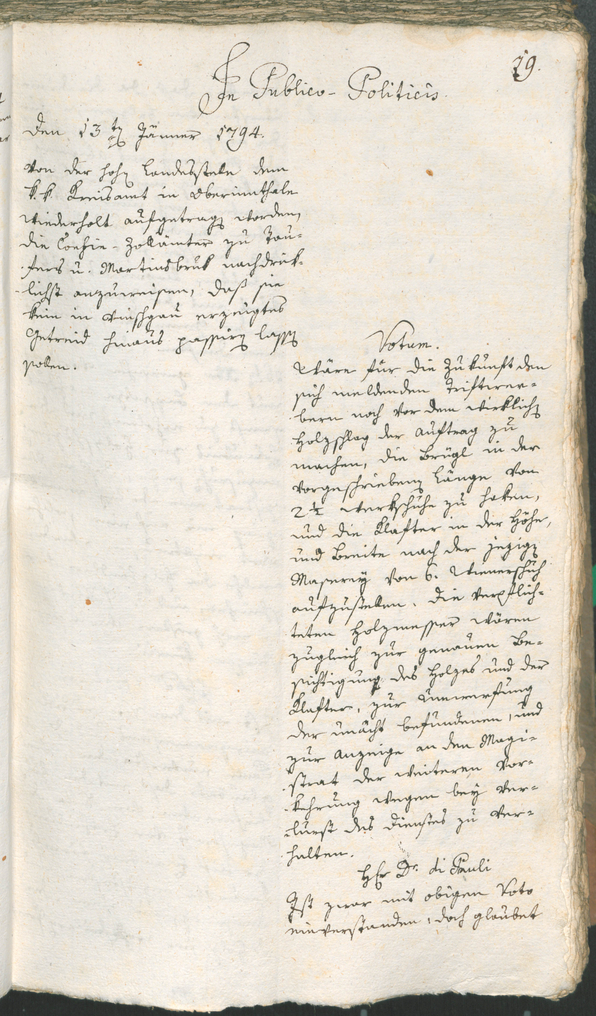 29.
In Publico-Politicis.
Den 13ten Jänner 1794.
Von der hohen Landesstelle dem
k. k. Kreisamt in Oberinnthale
wiederholt aufgetragen worden,
die Confin-Zollämter zu Tau-
fers u. Martinsbruk nachdrük-
lichst anzuweisen, daß sie
kein in Vinschgau erzeugtes
Getreid hinaus passiren lassen
sollen.
Votum.
Wäre für die Zukunft den
sich meldenden Trifterwer-
bern noch vor dem wirklichen
Holzschlag der Auftrag zu
machen, die Brügl in der
vorgeschriebenen Länge von
2 ½ Werkschuhe zu haken,
und die Klafter in der Höhe,
und Breite nach der jezigen
Maserey von 6. Wienerschuh
aufzustellen. Die verpflich-
teten Holzmesser wären
zugleich zur genauen Be-
sichtigung des Holzes und der
Klafter, zur Umwerfung
der unächt befundenen, und
zur Anzeige an den Magi-
strat der weiteren Vor-
kehrung wegen bey Ver-
lurst des Dienstes zu ver-
halten.
Hr Dr. di Pauli
Ist zwar mit obigen Voto
einverstanden: doch glaubet